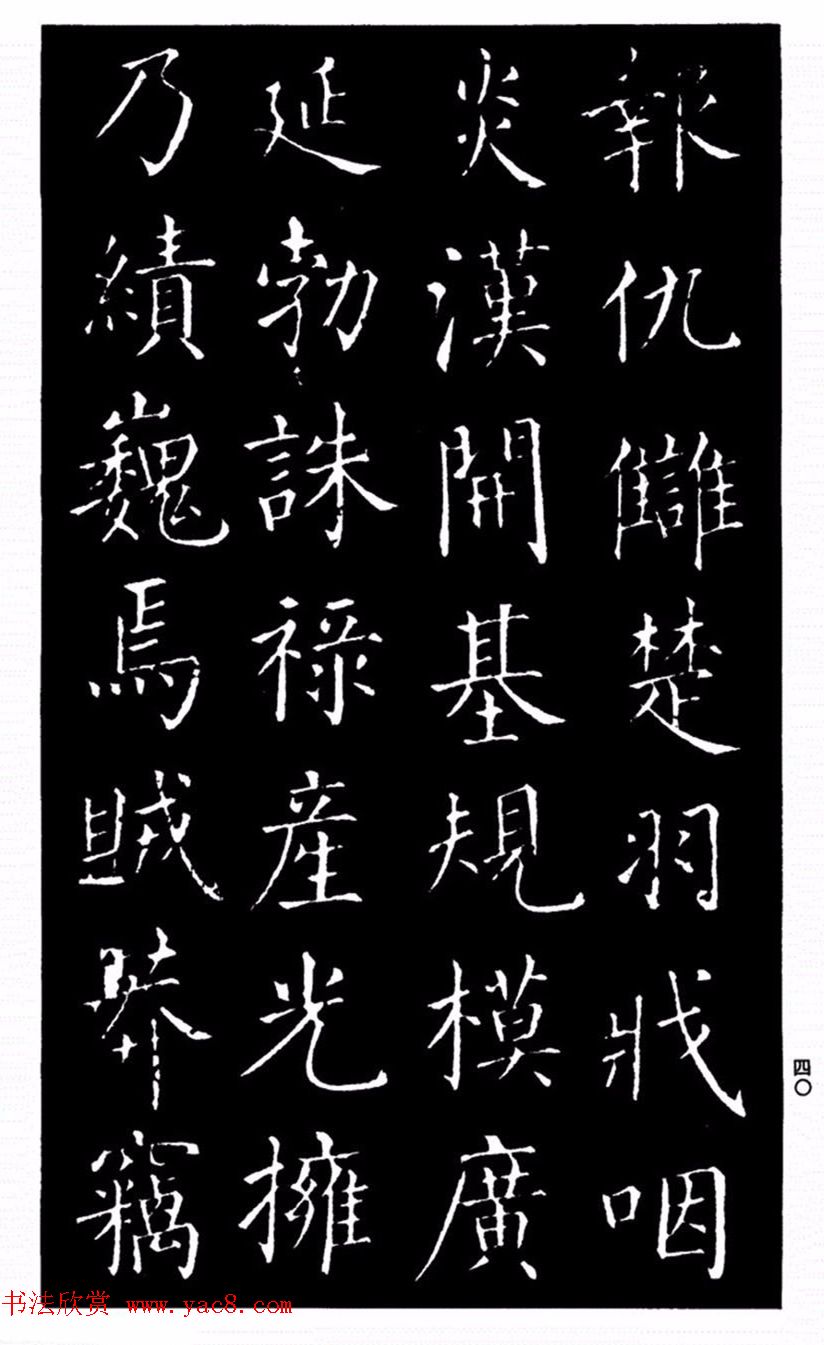 報仇讎楚羽戕咽
炎漢開基規模廣
延勃誅祿産光擁
乃績巍焉賊莽竊
四〇
书法欣赏 www.yac8.com